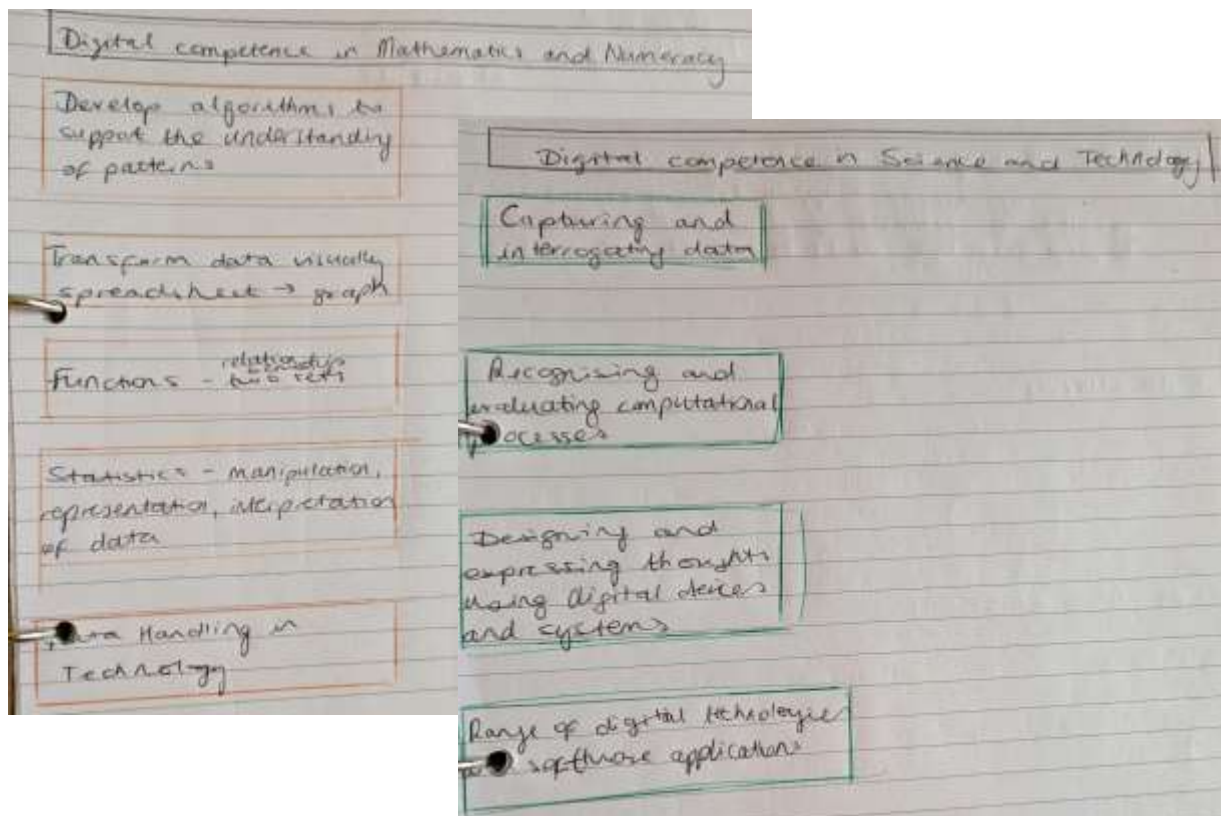 Digital competence in Mathematics and Numeracy
Develop algorithms to
support the understanding
of patterns
Transform data visually
spreadsheet → graph
relationship
Functions - two sets
Statistics - manipulation,
representation, interpretation
of data
Handling in
Technology
Digital competence in Science and Technology
Capturing and
interrogating data
Recognising and
evaluating computational
processes
Designing and
expressing thoughts
using digital devices
and systems
Range of digital technologies
software applications